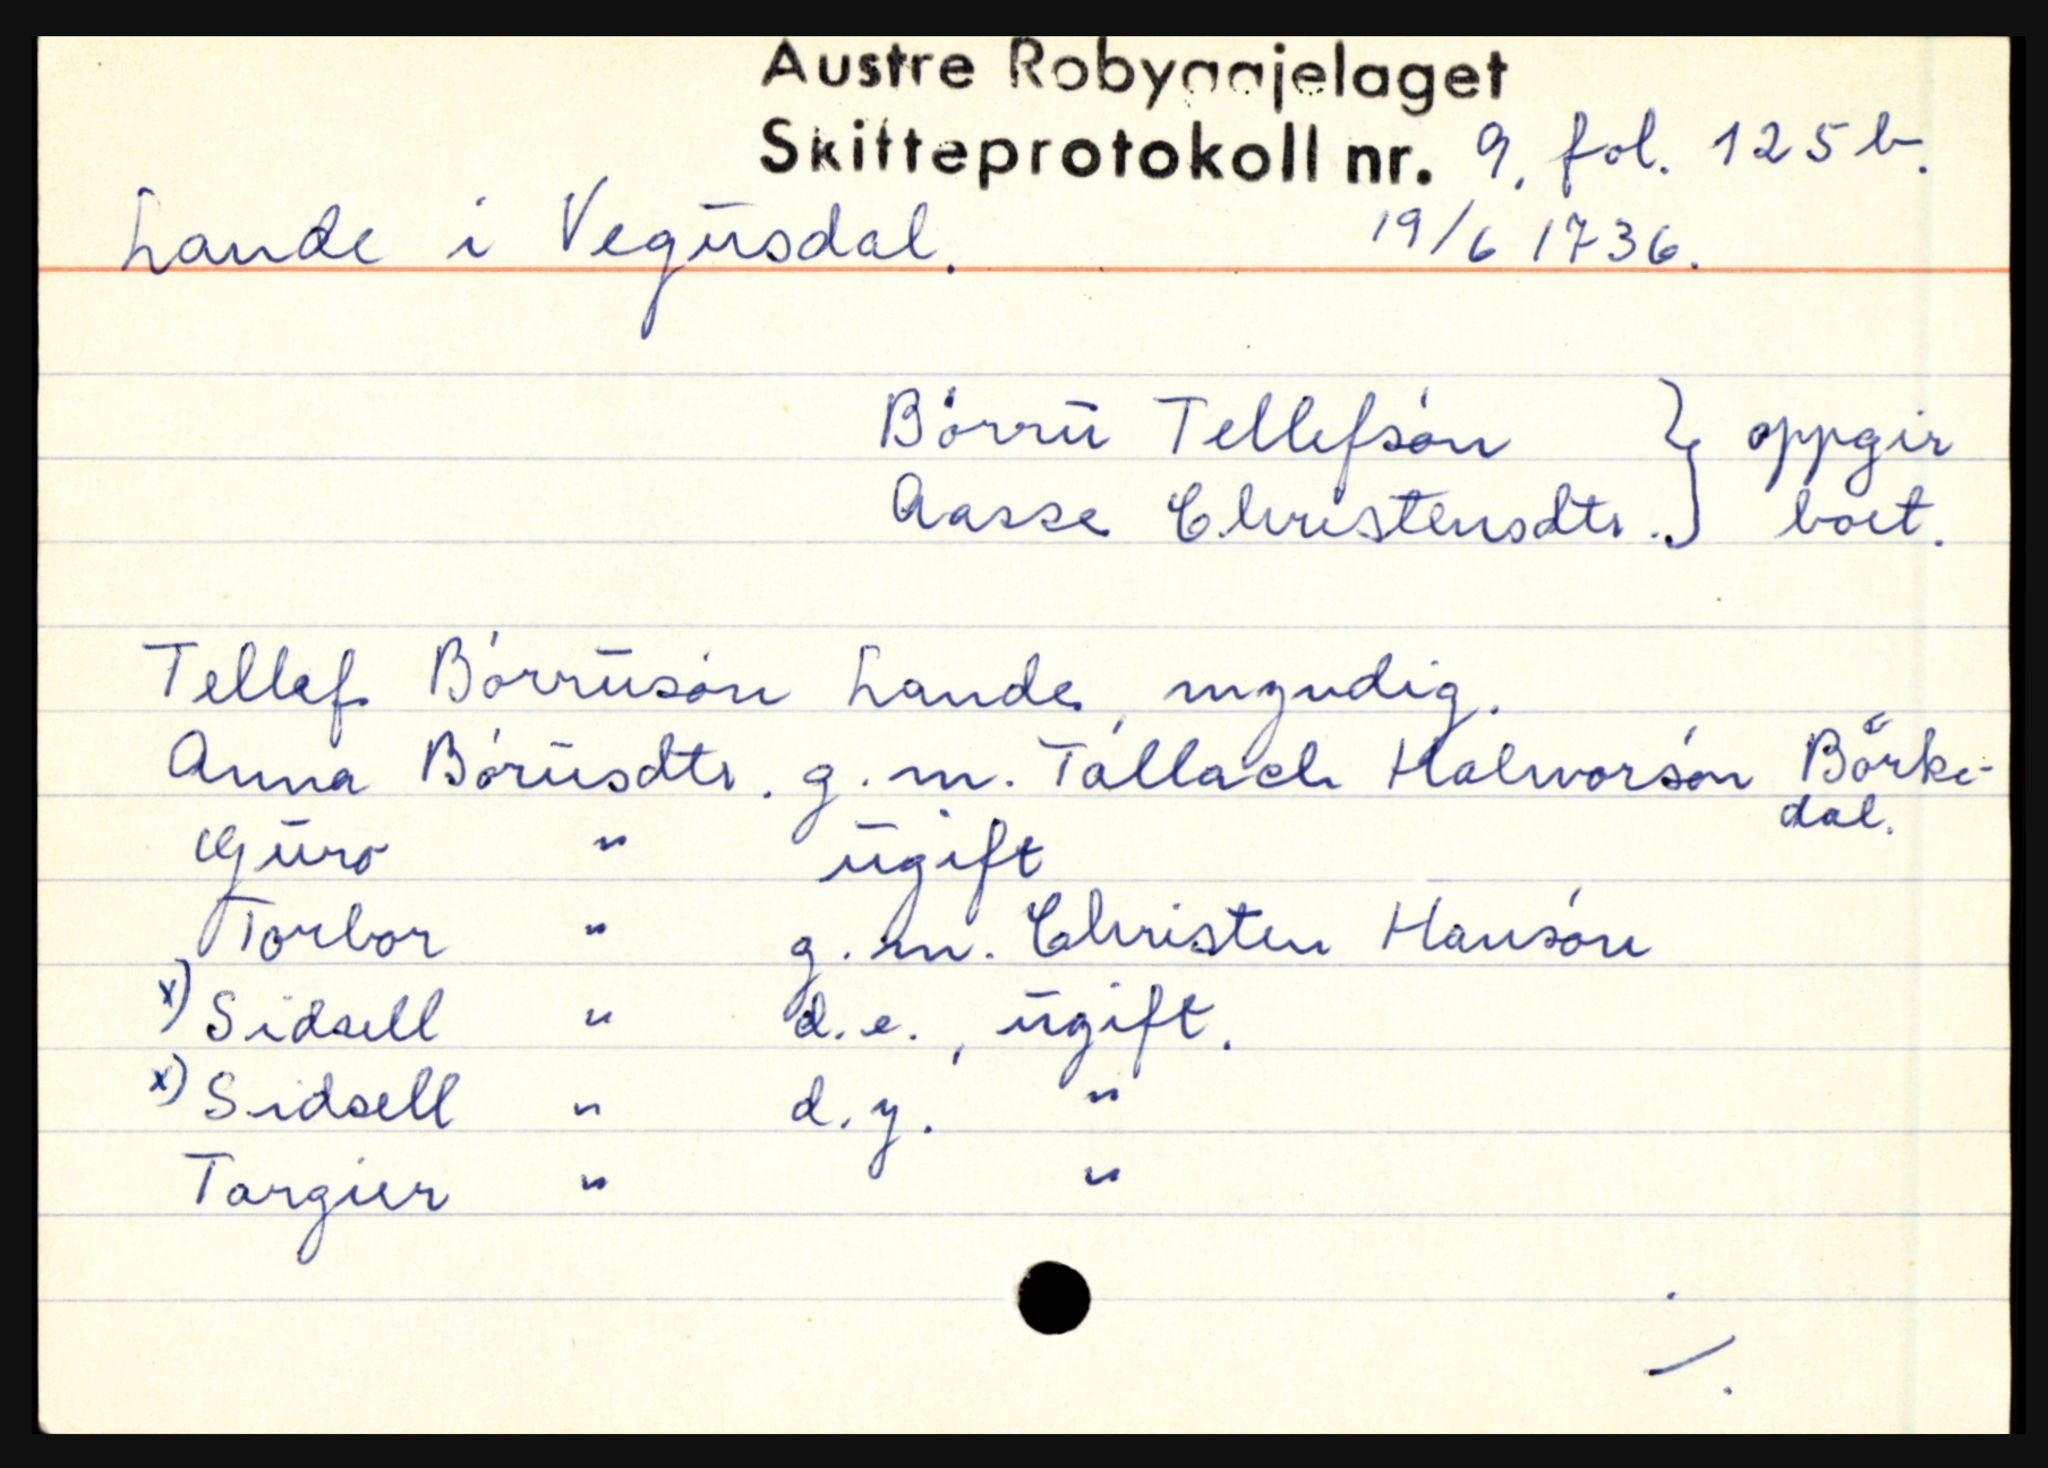 Austre Robyggjelaget
Skifteprotokoll nr. 9, fol. 125 b.
Lande i Vegusdal. 19/6 1736.
Børru Tellefsøn } oppgir
Aasse Christensdtr. } boet.
Tellef Børrusøn Lande, myndig.
Anna Børusdtr. g. m. Tallach Halvorsøn Børke-
dal.
Guro " ugift
Torbor " g. m. Christen Hansøn
x) Sidsell " d. e., ugift.
x) Sidsell " d. y. "
Targier " "